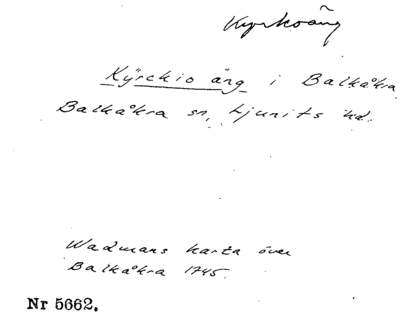 Kyrkoäng
Kÿrckio äng i Balkåkra
Balkåkra sn, Ljunits hd.
Wadmans karta över
Balkåkra 1745.
Nr 5662.